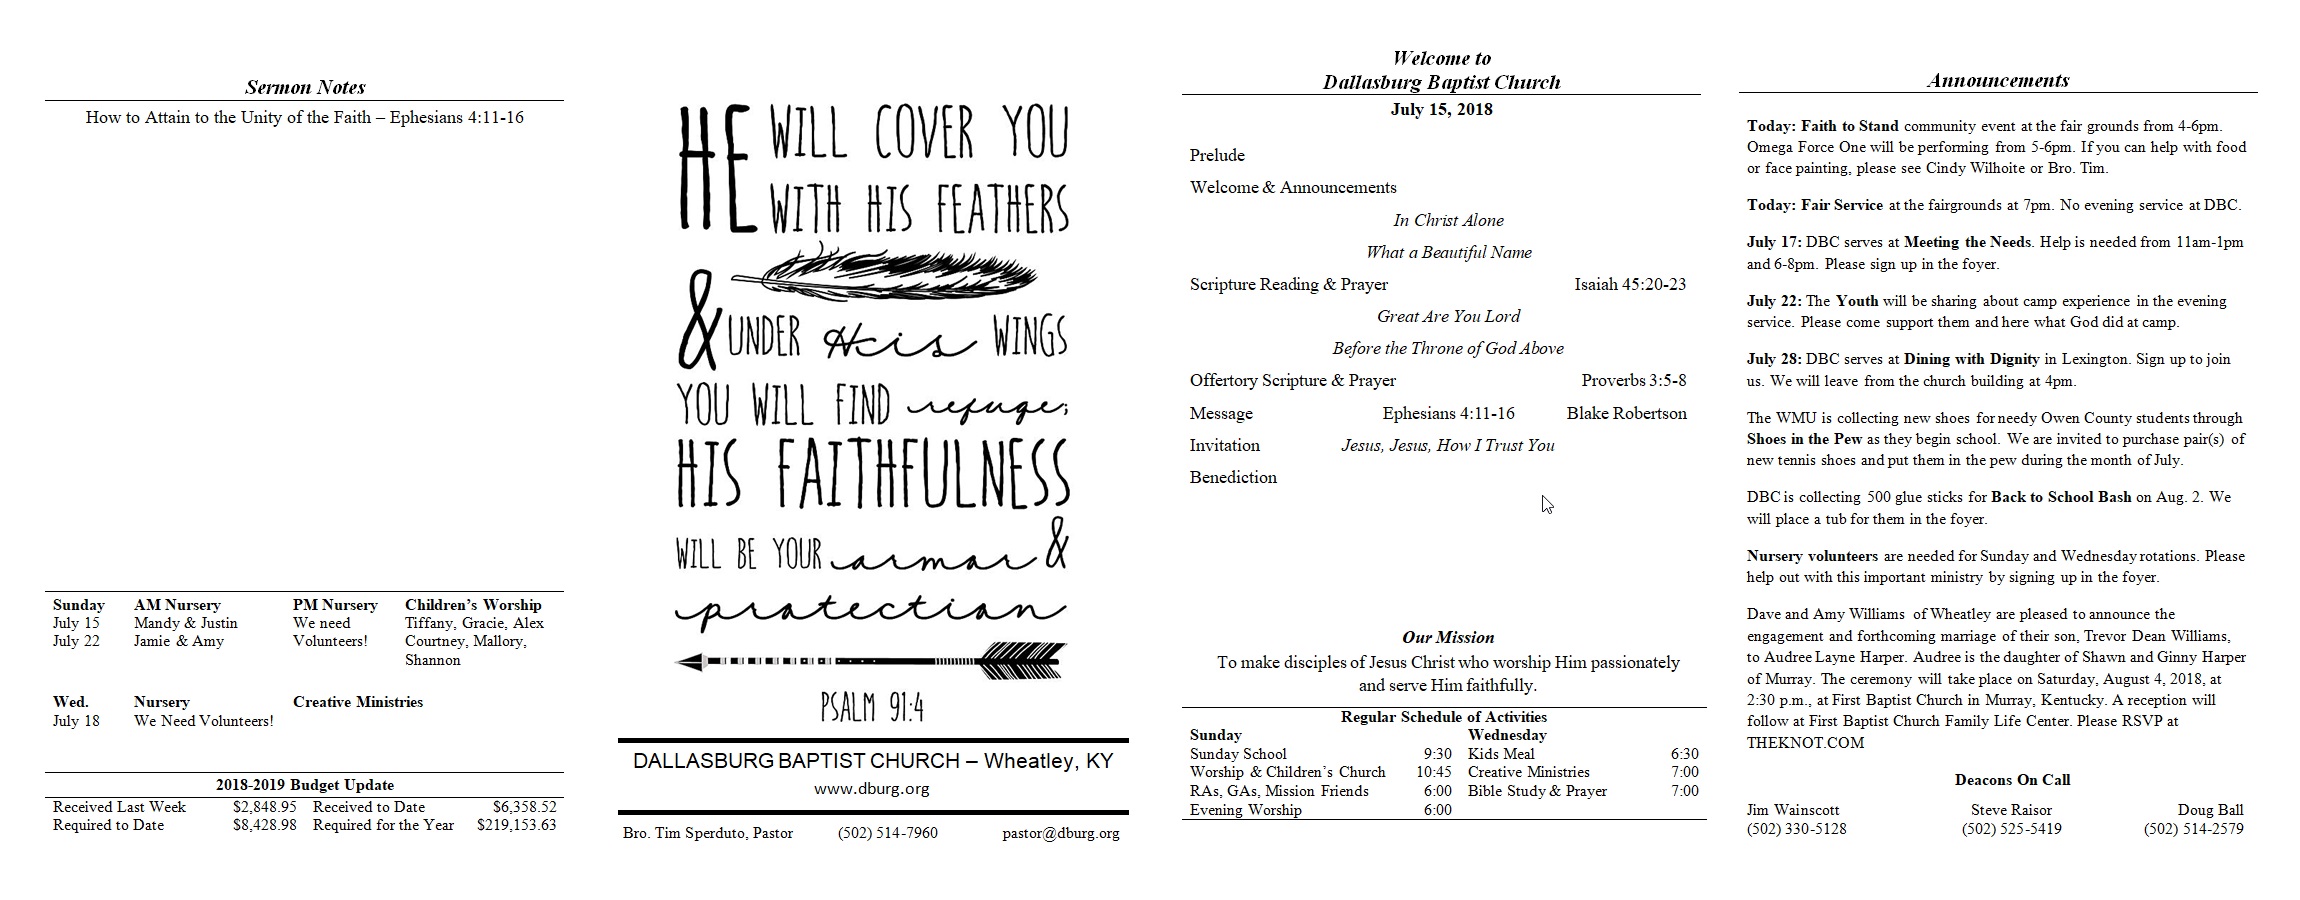 Sermon Notes
How to Attain to the Unity of the Faith – Ephesians 4:11-16
Sunday AM Nursery PM Nursery Children's Worship
July 15 Mandy & Justin We need Tiffany, Gracie, Alex
July 22 Jamie & Amy Volunteers! Courtney, Mallory,
Shannon
Wed. Nursery Creative Ministries
July 18 We Need Volunteers!
2018-2019 Budget Update
Received Last Week $2,848.95 Received to Date $6,358.52
Required to Date $8,428.98 Required for the Year $219,153.63
HE WILL COVER YOU
WITH HIS FEATHERS
& UNDER His WINGS
YOU WILL FIND refuge;
HIS FAITHFULNESS
WILL BE YOUR armor &
protection
PSALM 91:4
DALLASBURG BAPTIST CHURCH – Wheatley, KY
www.dburg.org
Bro. Tim Sperduto, Pastor (502) 514-7960 pastor@dburg.org
Welcome to
Dallasburg Baptist Church
July 15, 2018
Prelude
Welcome & Announcements
In Christ Alone
What a Beautiful Name
Scripture Reading & Prayer Isaiah 45:20-23
Great Are You Lord
Before the Throne of God Above
Offertory Scripture & Prayer Proverbs 3:5-8
Message Ephesians 4:11-16 Blake Robertson
Invitation Jesus, Jesus, How I Trust You
Benediction
Our Mission
To make disciples of Jesus Christ who worship Him passionately
and serve Him faithfully.
Regular Schedule of Activities
Sunday Wednesday
Sunday School 9:30 Kids Meal 6:30
Worship & Children's Church 10:45 Creative Ministries 7:00
RAs, GAs, Mission Friends 6:00 Bible Study & Prayer 7:00
Evening Worship 6:00
Announcements
Today: Faith to Stand community event at the fair grounds from 4-6pm.
Omega Force One will be performing from 5-6pm. If you can help with food
or face painting, please see Cindy Wilhoite or Bro. Tim.
Today: Fair Service at the fairgrounds at 7pm. No evening service at DBC.
July 17: DBC serves at Meeting the Needs. Help is needed from 11am-1pm
and 6-8pm. Please sign up in the foyer.
July 22: The Youth will be sharing about camp experience in the evening
service. Please come support them and here what God did at camp.
July 28: DBC serves at Dining with Dignity in Lexington. Sign up to join
us. We will leave from the church building at 4pm.
The WMU is collecting new shoes for needy Owen County students through
Shoes in the Pew as they begin school. We are invited to purchase pair(s) of
new tennis shoes and put them in the pew during the month of July.
DBC is collecting 500 glue sticks for Back to School Bash on Aug. 2. We
will place a tub for them in the foyer.
Nursery volunteers are needed for Sunday and Wednesday rotations. Please
help out with this important ministry by signing up in the foyer.
Dave and Amy Williams of Wheatley are pleased to announce the
engagement and forthcoming marriage of their son, Trevor Dean Williams,
to Audree Layne Harper. Audree is the daughter of Shawn and Ginny Harper
of Murray. The ceremony will take place on Saturday, August 4, 2018, at
2:30 p.m., at First Baptist Church in Murray, Kentucky. A reception will
follow at First Baptist Church Family Life Center. Please RSVP at
THEKNOT.COM
Deacons On Call
Jim Wainscott Steve Raisor Doug Ball
(502) 330-5128 (502) 525-5419 (502) 514-2579